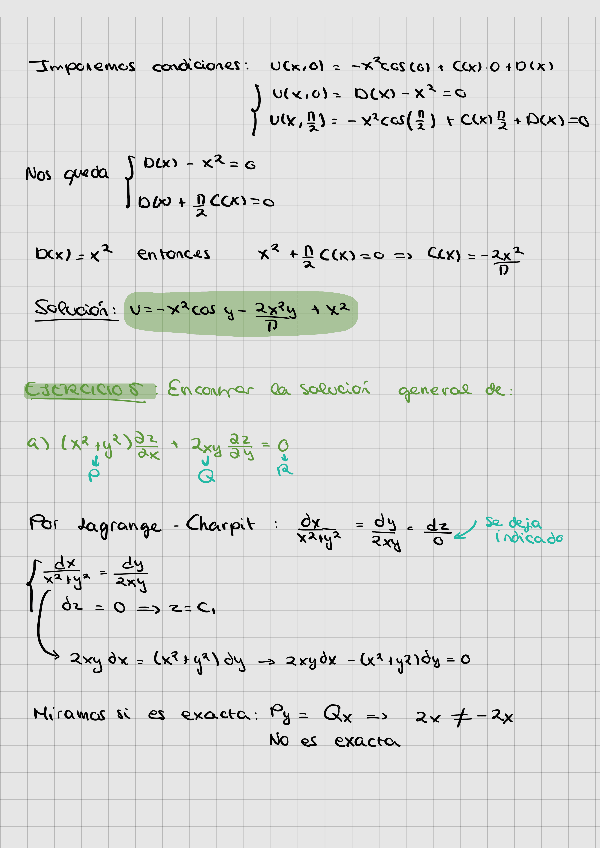 Imponemos condiciones: U(x,0) = -x²cos(0) + C(x)·0 + D(x)
U(x,0) = D(x) - x² = 0
U(x, π/2) = -x²cos(π/2) + C(x) π/2 + D(x) = 0
Nos queda { D(x) - x² = 0
D(x) + π/2 C(x) = 0
D(x) = x² entonces x² + π/2 C(x) = 0 => C(x) = -2x²/π
Solución: U = -x²cos y - 2x²y/π + x²
EJERCICIO 5 Encontrar la solución general de:
a) (x²+y²) ∂z/∂x + 2xy ∂z/∂y = 0
P Q R
Por Lagrange - Charpit: dx/x²+y² = dy/2xy = dz/0 se deja indicado
dx/x²+y² = dy/2xy
dz = 0 => z = C₁
2xy dx = (x²+y²) dy → 2xy dx - (x²+y²) dy = 0
Miramos si es exacta: Py = Qx => 2x ≠ -2x
No es exacta